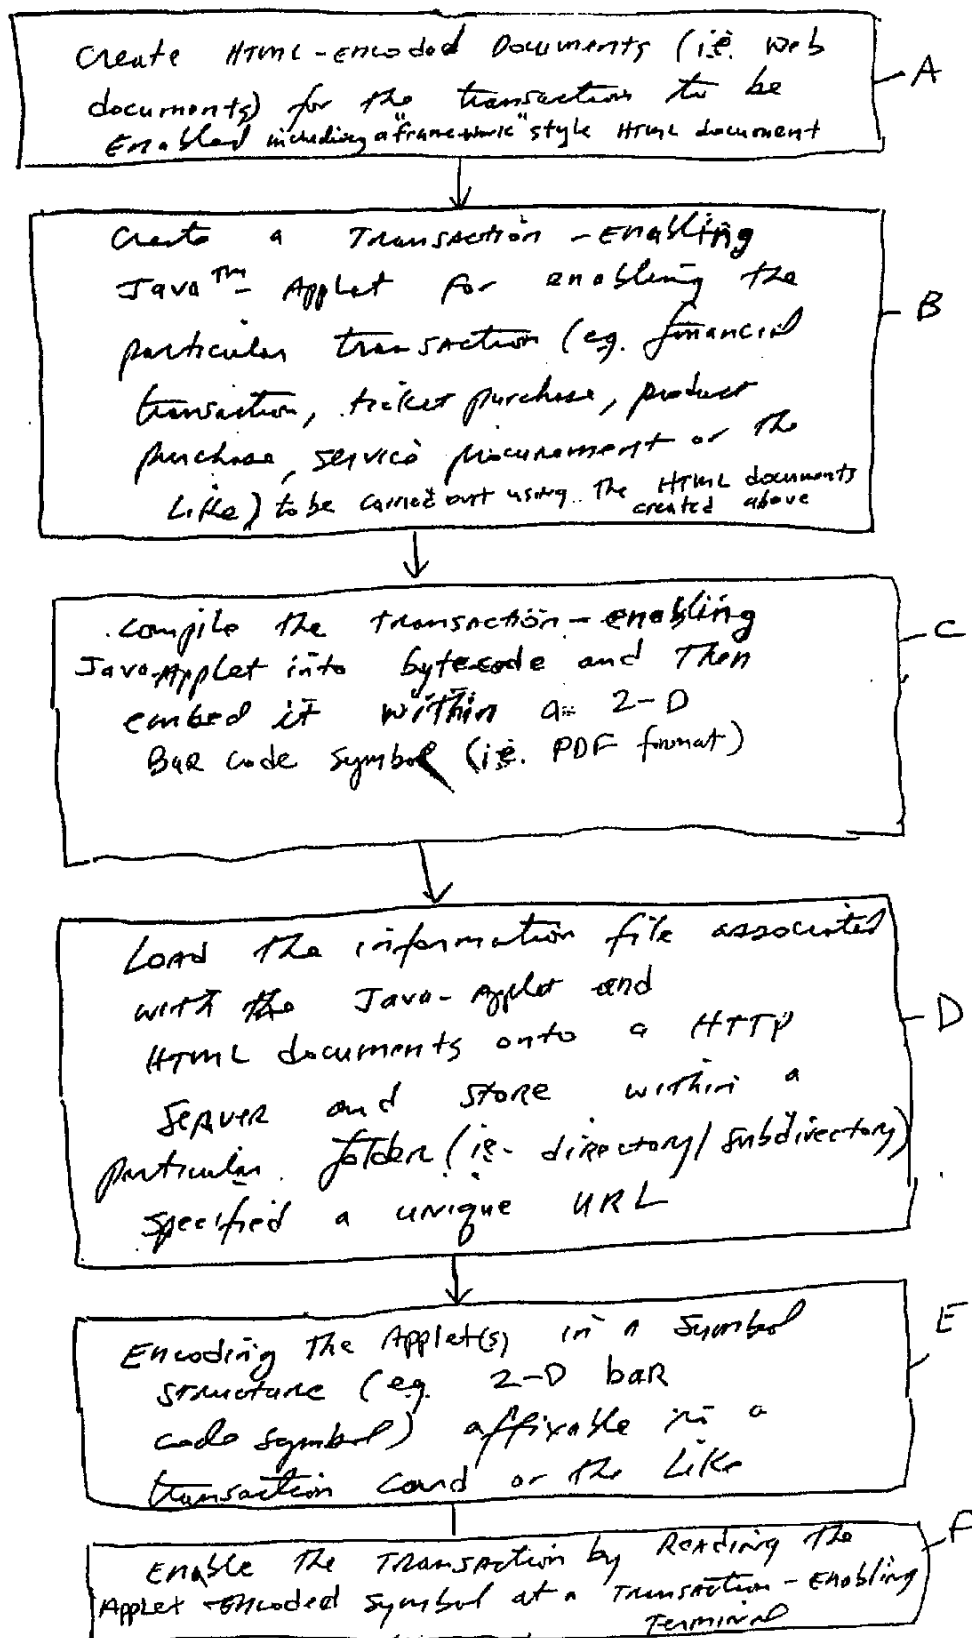 Create HTML-encoded Documents (i.e. web
documents) for the transaction to be
Enabled including a "frame-work" style HTML document
A
Create a Transaction-Enabling
Java™ Applet for enabling the
particular transaction (e.g. financial
transaction, ticket purchase, product
purchase, service procurement or the
Like) to be carried out using the HTML documents
created above
B
Compile the transaction-enabling
Java-Applet into bytecode and Then
embed it within a 2-D
Bar code symbol (i.e. PDF format)
C
Load the information file associated
with the Java-Applet and
HTML documents onto a HTTP
Server and store within a
particular folder (i.e. directory/subdirectory)
specified a unique URL
D
Encoding The Applet(s) in a Symbol
structure (e.g. 2-D bar
code symbol) affixable in a
transaction card or the Like
E
Enable the Transaction by Reading the
Applet-Encoded Symbol at a Transaction-Enabling
Terminal
F